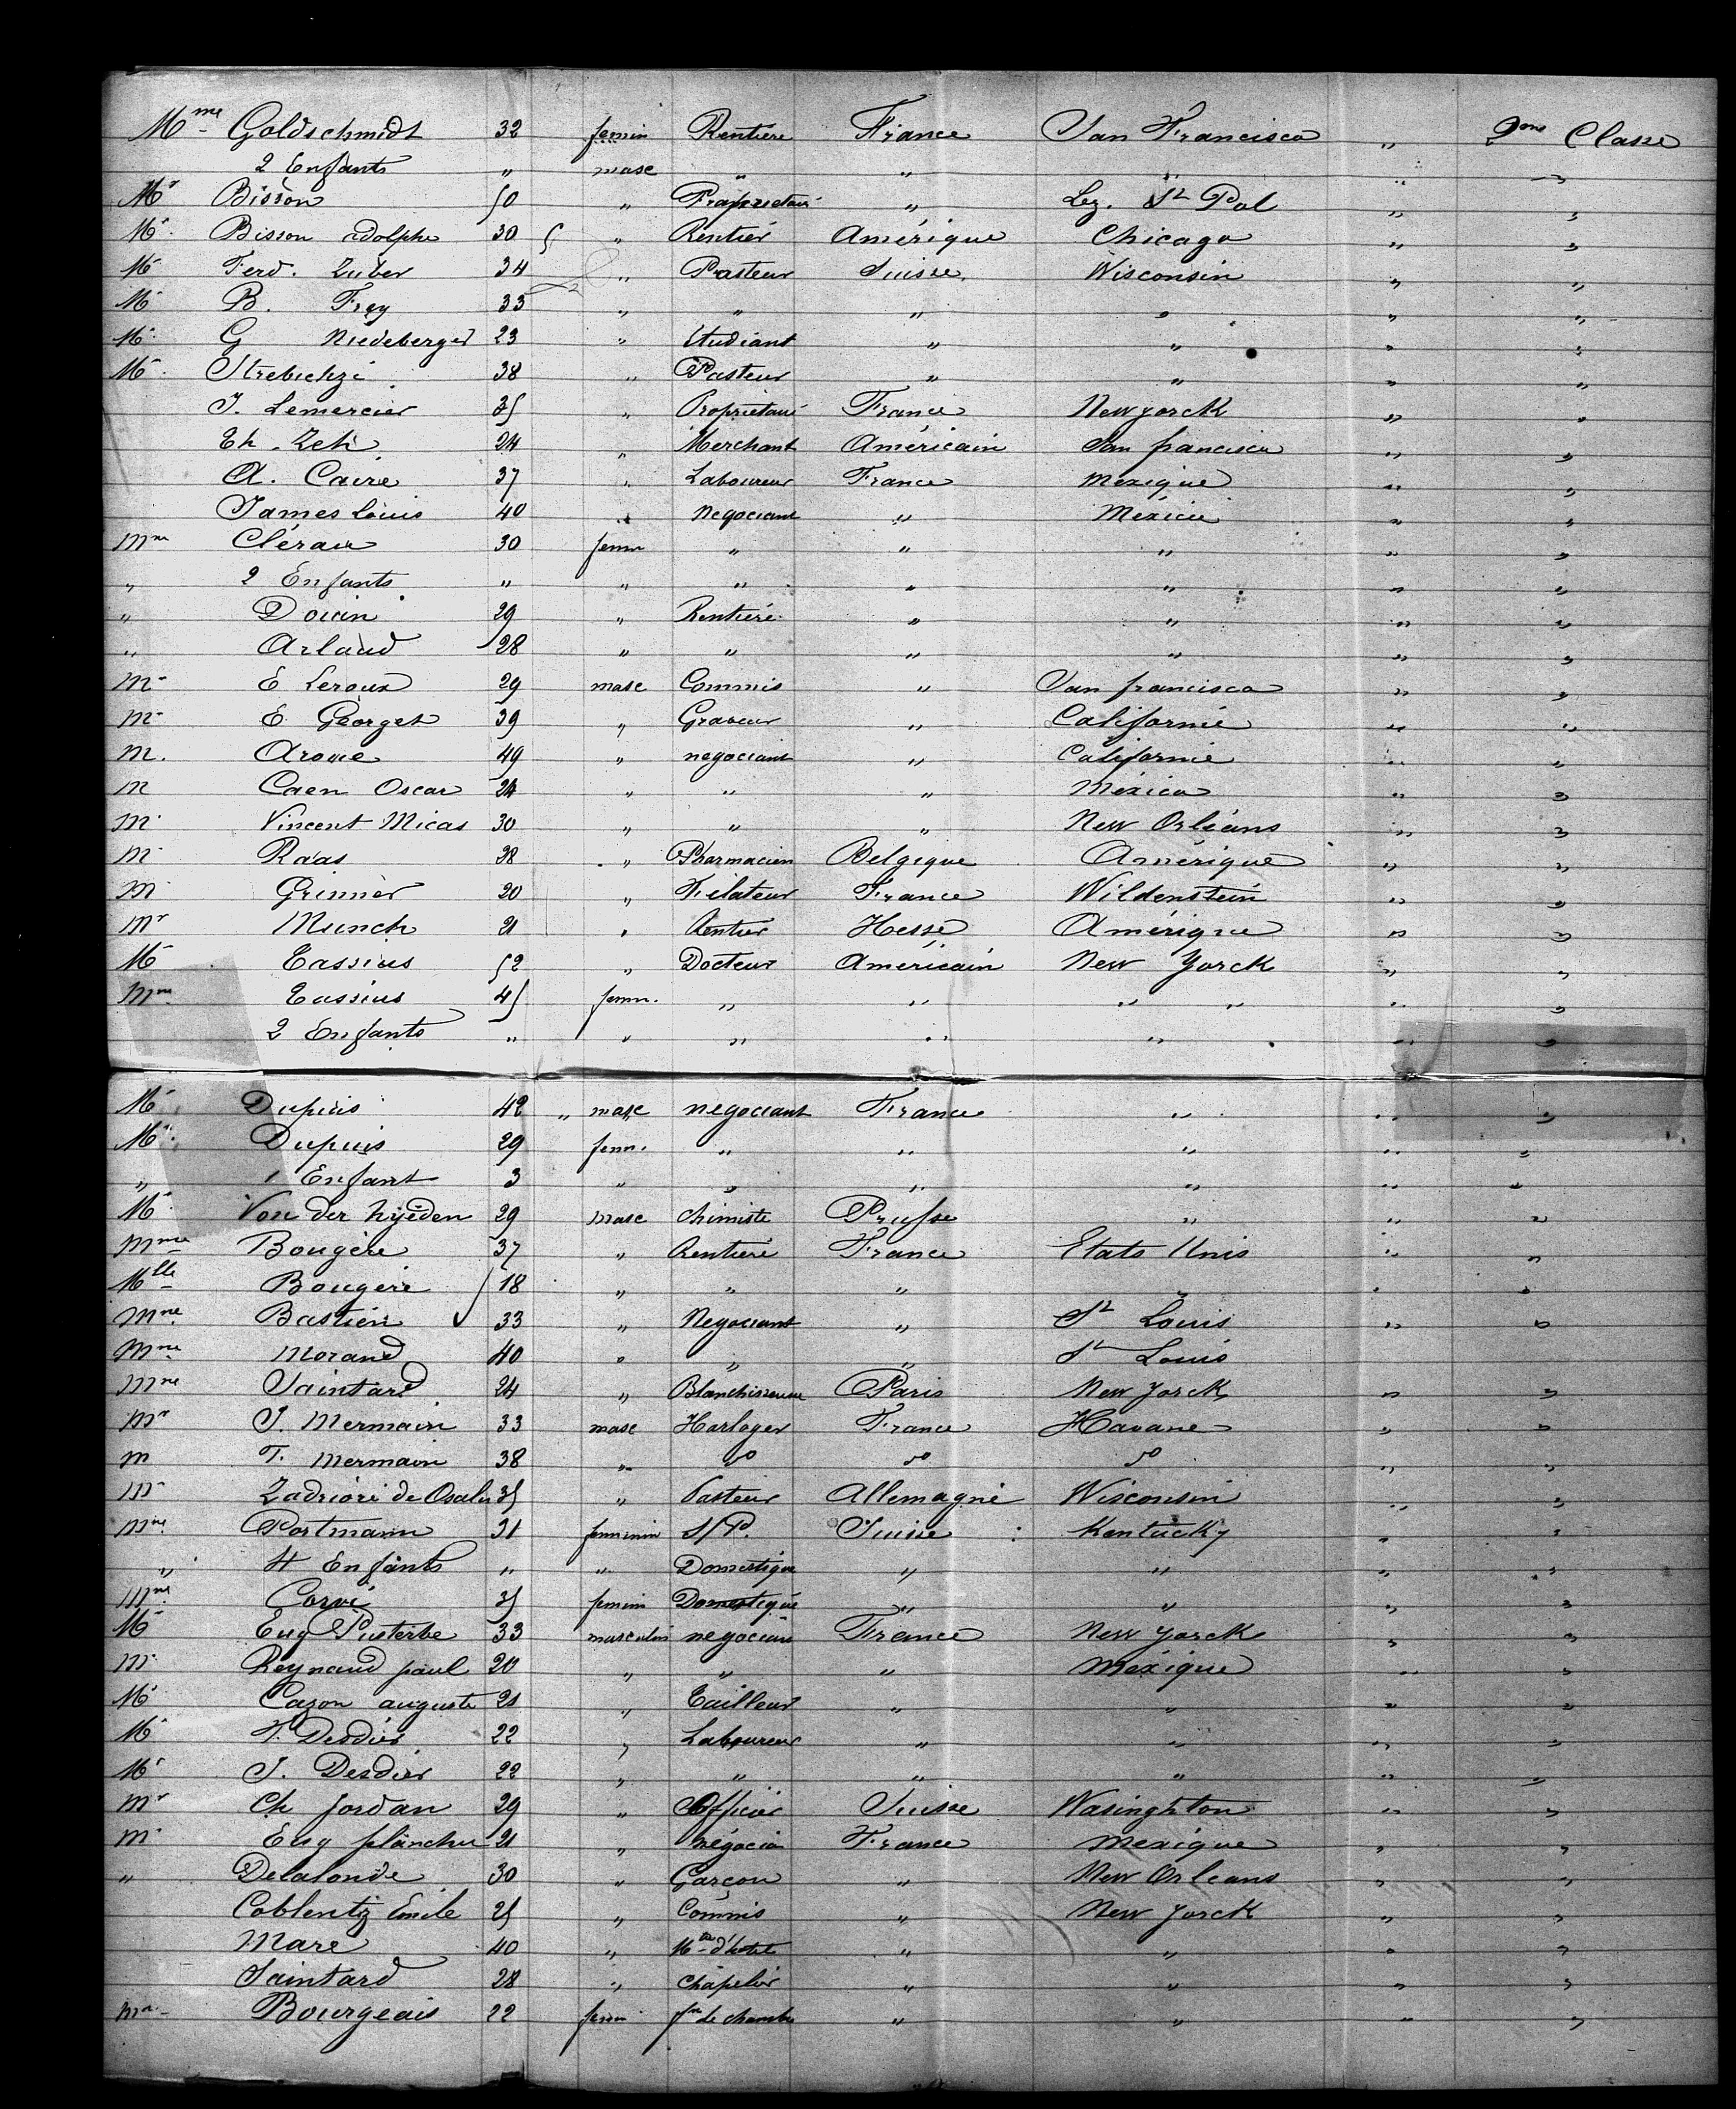 Mme Goldschmidt 32 femin Rentière France San Francisco " 2me Classe
2 Enfants " masc " " " " "
Mr Bisson 50 " Propriétaire " Lez. St Pol " "
Mr Bisson adolphe 30 " Rentier Amérique Chicago " "
Mr Ferd. Zuber 34 " Pasteur Suisse Wisconsin " "
Mr B. Frey 33 " " " " " "
Mr G Niedeberger 23 " Etudiant " " " "
Mr Strebichzi 38 " Pasteur " " " "
J. Lemercier 35 " Propriétaire France New yorck " "
Eh. Zeh 24 " Merchant Américain San francisco " "
A. Caire 37 " Laboureur France Mexique " "
James Louis 40 " Negociant " "
Mme 30 femn " " " " "
" 2 Enfants " " " " " " "
" 29 " Rentière " " " "
" Arlaud 28 " " " " " "
Mr E Leroux 29 masc Commis " San francisco " "
Mr E. Georges 39 " Graveur " Californie " "
M. 49 " negociant " Californie " "
M Caen Oscar 24 " " " México " "
M. Vincent Micas 30 " " " New Orléans " "
M Raas 38 " Pharmacien Belgique Amérique " "
M Grimier 20 " Filateur France Wildenstein " "
Mr Munch 21 " Rentier Hesse Amérique " "
Mr Cassius 52 " Docteur Américain New Yorck " "
Mme Cassius 45 femn. " " " " " "
2 Enfants " " " " " " "
Mr Dupuis 42 " masc negociant France " " "
Me Dupuis 29 femn. " " " " "
" 1 Enfant 3 " " " " " "
Mr Von der hyeden 29 masc chimiste Prusse " " "
Mme Bougère 37 " Rentière France Etats Unis " "
Mlle Bougère 18 " " " " " "
Mme Bastien 33 " Negociant " St Louis " "
Mme Morand 40 " " " St Louis
Mme Saintard 24 " Blanchisseuse Paris New Yorck " "
Mr J. Mermain 33 masc Horloger France Havane " "
M T. Mermain 38 " do do do " "
Mr 35 " Pasteur Allemagne Wisconsin " "
Mme Portmann 31 femminin S/P. Suisse : Kentucky " "
" 4 Enfants " " Domestique " " " "
Mme Corvé 35 feminin Domestique " " " "
Mr Eug Pusterbe 33 masculin negociant France New Yorck " "
M. Reynaud paul 20 " " " Mexique " "
Mr Cazon auguste 21 " Tailleur " " " "
Mr T. Desdier 22 " Laboureur " " " "
Mr J. Desdier 22 " " " " " "
Mr Ch Jordan 29 " Officier Suisse Wasinghton " "
Mr Eug planche 21 " négocian France Mexique " "
" Delalonde 30 " Garçon " New Orleans " "
Coblentz Emile 25 " Commis " New Yorck " "
Mare 40 " Mtre d'hotel " " " "
Saintard 28 " Chapelier " " " "
Me Bourgeais 22 femin fme de chambre " " " "